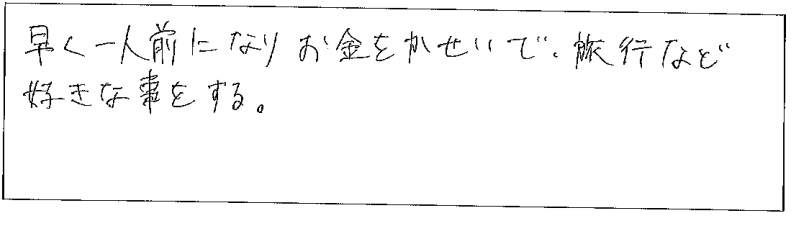 早く一人前になりお金をかせいで、旅行など
好きな事をする。